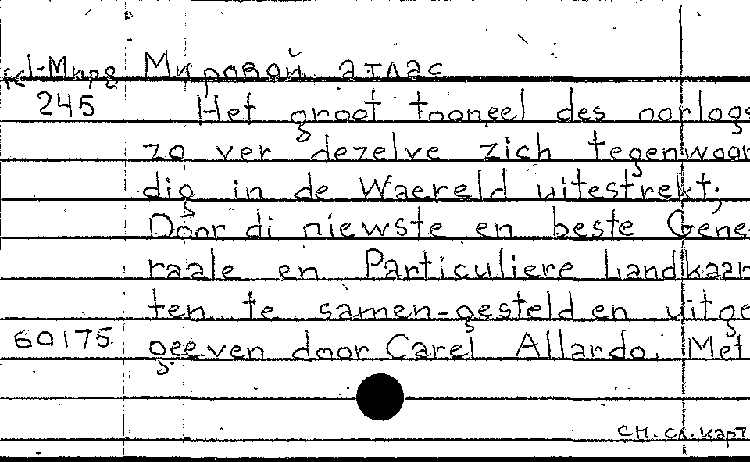 К1-Мир8 Мировой атлас
245 Het groot tooneel des oorlogs
zo ver dezelve zich tegenwoor
dig in de Waereld uitestrekt;
Door di niewste en beste Gene-
raale en Particuliere Landkaar
ten te samen-gesteld en uitge
60175 geeven door Carel Allardo. Met
см. сл. карт